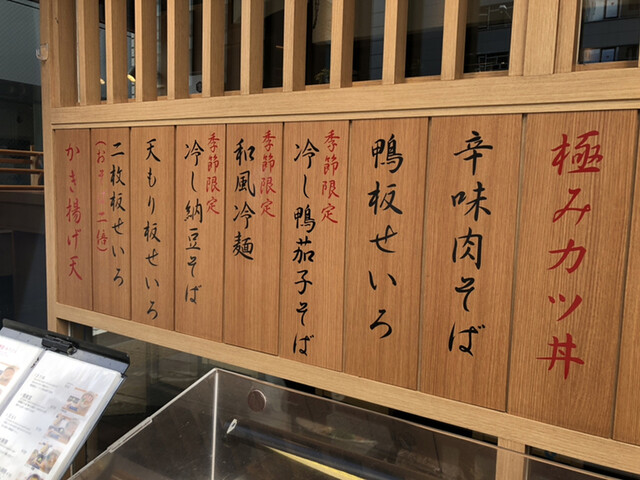 極みカツ丼
辛味肉そば
鴨板せいろ
季節限定
冷し鴨茄子そば
季節限定
和風冷麺
季節限定
冷し納豆そば
天もり板せいろ
二枚板せいろ
(おそば二倍)
かき揚げ天